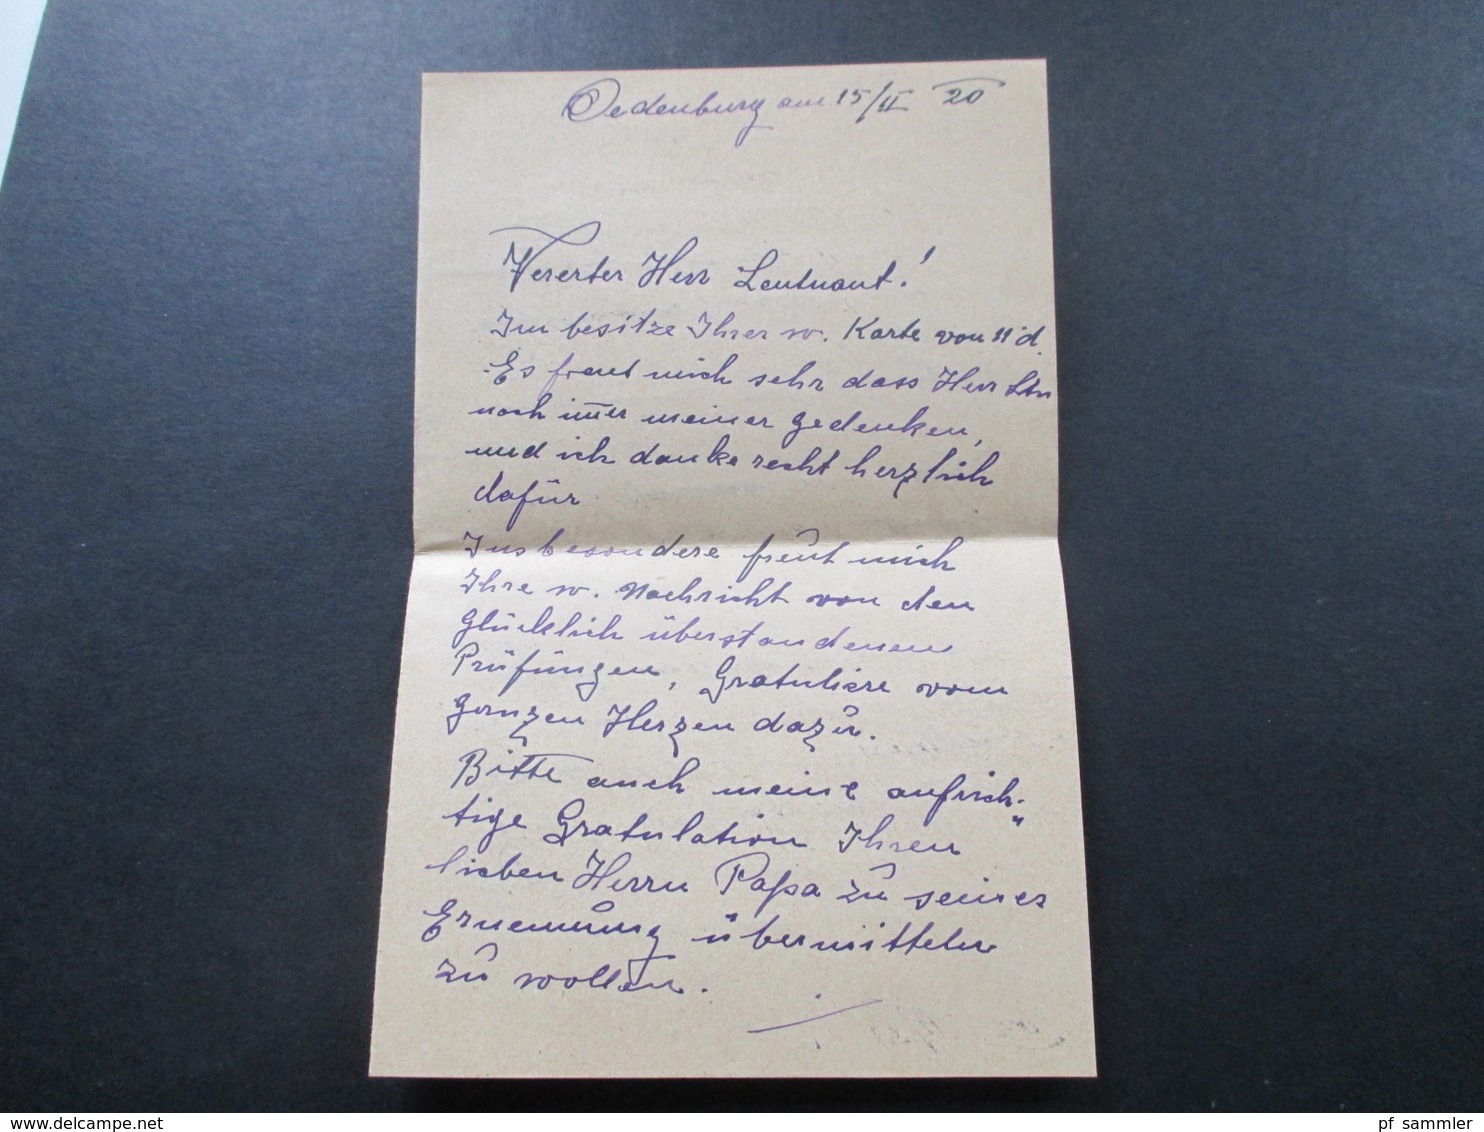 Oedenburg am 15/II 20
Vererter Herr Leutnant!
Im besitze Ihrer w. Karte von 11 d.
Es freut mich sehr dass Herr Ltn
noch im̄er meiner gedenken,
und ich danke recht herzlich
dafür
Insbesondere freut mich
Ihre w. Nachricht von den
glücklich überstandenen
Prüfungen, Gratuliere vom
ganzen Herzen dazu.
Bitte auch meine aufrich-
tige Gratulation Ihren
lieben Herrn Papa zu seiner
Ernennung übermitteln
zu wollen.
./.
delcampe.net
pf_sammler